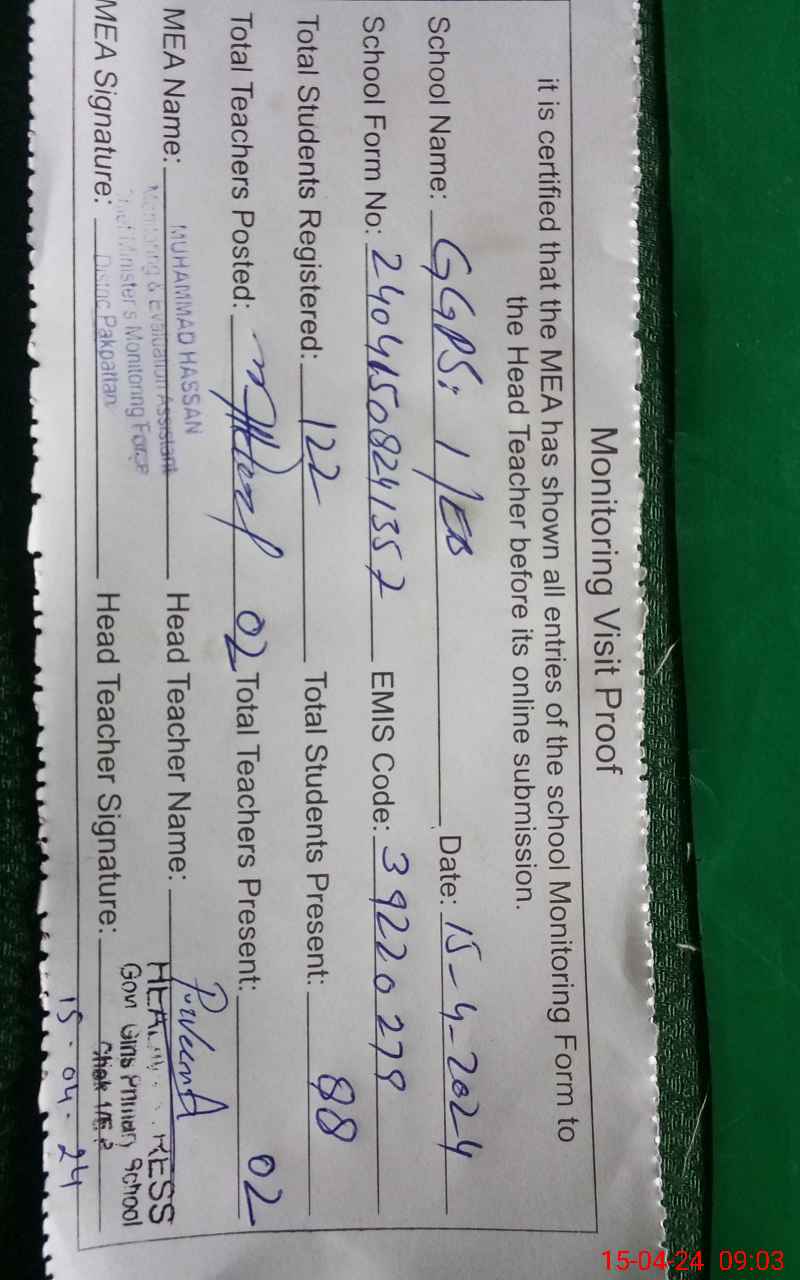 Monitoring Visit Proof
it is certified that the MEA has shown all entries of the school Monitoring Form to
the Head Teacher before its online submission.
School Name: GGPS: 1/EB Date: 15-4-2024
School Form No: 24041508241357 EMIS Code: 39220279
Total Students Registered: 122 Total Students Present: 88
Total Teachers Posted: 02 Total Teachers Present: 02
MEA Name: MUHAMMAD HASSAN Head Teacher Name:
Monitoring & Evaluation Assistant
Chief Minister's Monitoring Force
MEA Signature: Distric Pakpattan Head Teacher Signature:
Girls Primary School
Chak 1/E.B
15.04.24
15-04-24 09:03